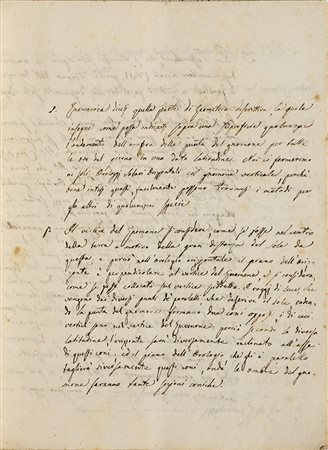 1. Gnomonica dicesi quella parte di Geometria descrittiva, la quale
insegna come possa indicarsi sopra una superficie qualunque
l'andamento dell'ombra della punta del gnomone per tutte
le ore del giorno in una data latitudine. Noi ci fermeremo
ai soli Orologj solari Orizontali col gnomone verticale, perchè
bene intesi questi facilmente possono trovarsi i metodi per
gli altri di qualunque specie
2. Il vertice del Gnomone si considera come se fosse nel centro
della terra a motivo della gran distanza del Sole da
questa, e perciò nell'orologio orizontale il piano dell'Oriz
zonte è perpendicolare al vertice del Gnomone, e si considera
come se fosse collocato sul vertice suddetto. I raggi di luce che
vengono dai diversi punti de' paralleli che descrive il sole caden
do la punta del gnomone formano due coni opposti, i di cui
vertici sono nel vertice del Gnomone; perciò secondo la diversa
latitudine l'orizonte sarà diversamente inclinato all'asse
di questi coni, ed il piano dell'Orologio che gli è parallelo
taglierà diversamente questi coni, onde le ombre del gno
mone saranno tante sezioni coniche.